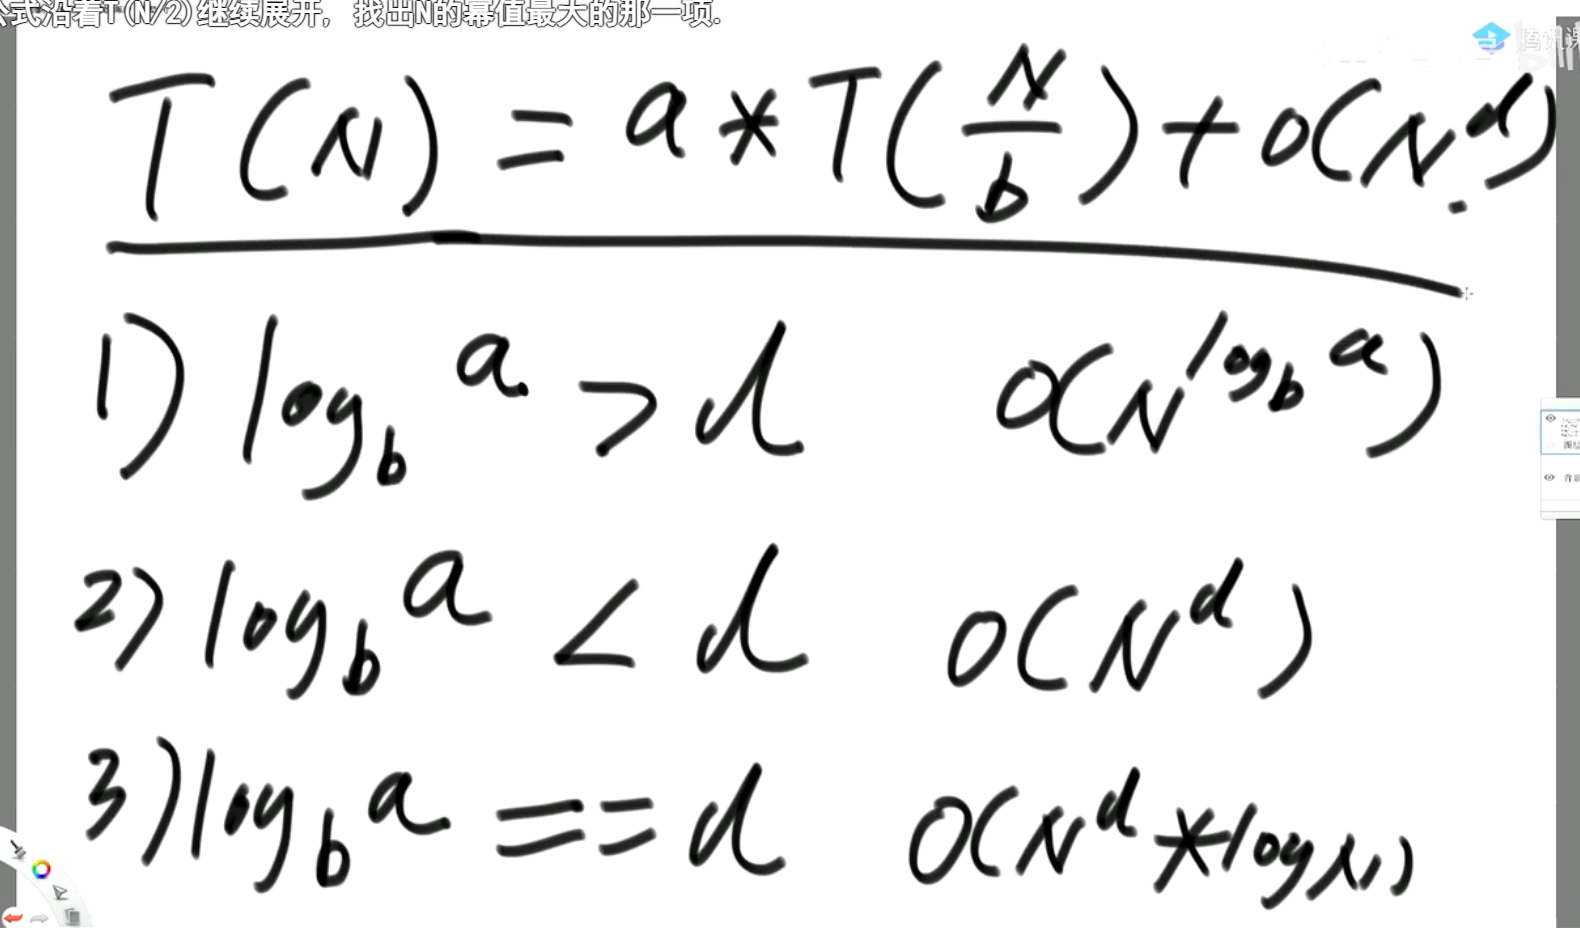 式沿着T(N/2)继续展开, 找出N的幂值最大的那一项.
腾讯课
T(N) = a * T(N/b) + O(N^d)
1) log_b a > d O(N^(log_b a))
2) log_b a < d O(N^d)
3) log_b a == d O(N^d * logN)